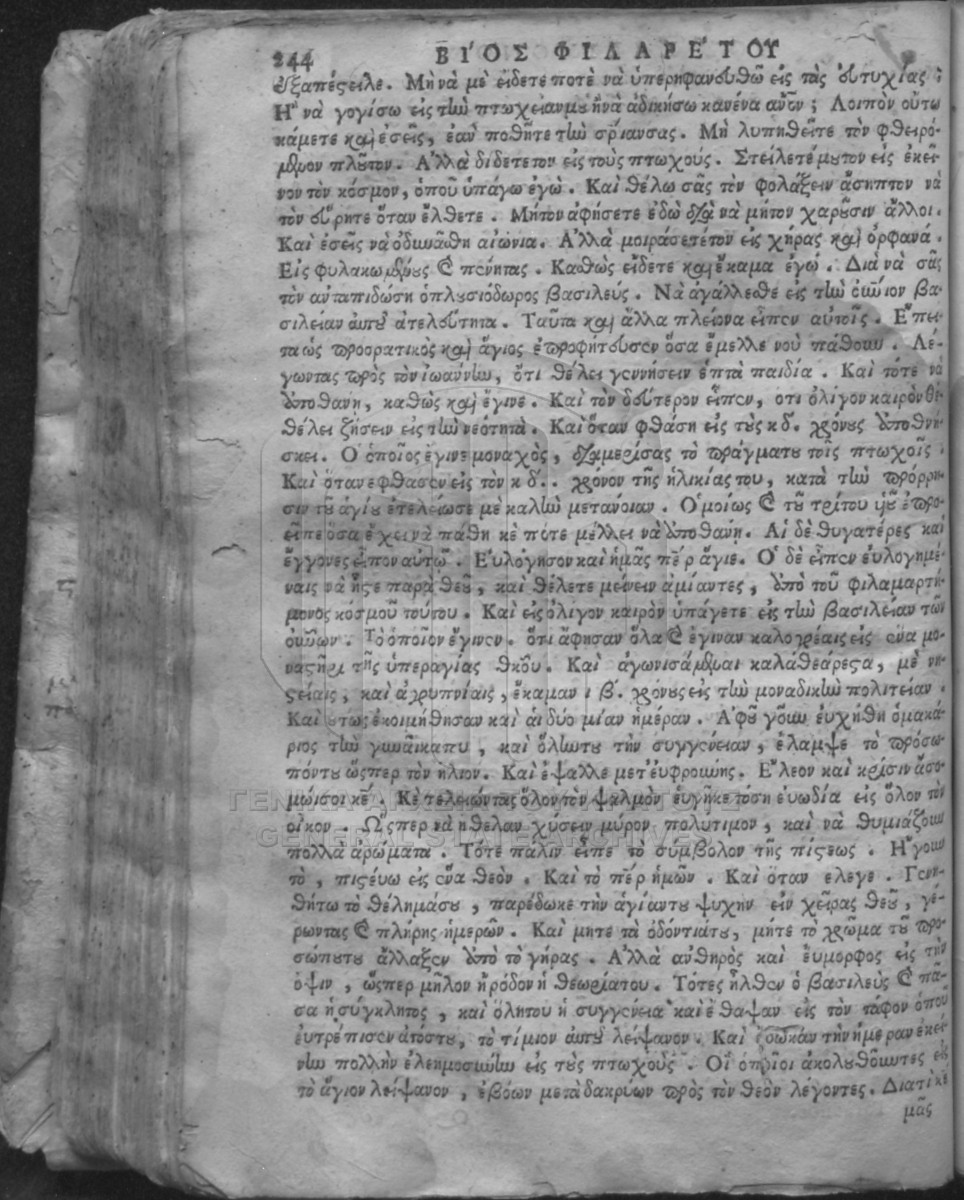 244 ΒΙ´ΟΣ ΦΙΛΑΡΕ´ΤΟΥ
ἐξαπέςειλε. Μὴ νὰ μὲ εἴδετε ποτὲ νὰ ὑπερηφανευθῶ εἰς τὰς εὐτυχίας ;
Η῍ νὰ γογίσω εἰς τὴν πτωχείαν μου ἢ νὰ ἀδικήσω κανένα ἄνον ; Λοιπὸν οὕτω
κάμετε καὶ ἐσεῖς, ἐὰν ποθῆτε τὴν σρίαν σας. Μὴ λυπηθεῖτε τὸν φθειρό-
μενον πλοῦτον. Α᾿λλὰ δίδετε τον εἰς τοὺς πτωχούς. Στείλετέ μου τον εἰς ἐκεῖ-
νον τὸν κόσμον, ὁποῦ ὑπάγω ἐγώ. Καὶ θέλω σᾶς τὸν φολάξειν ἄσηπτον νὰ
τὸν εὕρητε ὅταν ἔλθετε. Μήτον ἀφήσετε ἐδῶ διὰ νὰ μήτον χαροῦσιν ἄλλοι.
Καὶ ἐσεῖς νὰ ὀδυνᾶσθη αἰώνια. Α᾿λλὰ μοιράσετέ τον εἰς χήρας καὶ ὀρφανά.
Εἰς φυλακωμένους καὶ πένητας. Καθὼς εἴδετε καὶ ἔκαμα ἐγώ. Διὰ νὰ σᾶς
τὸν ἀνταπιδώση ὁ πλουσιόδωρος βασιλεύς. Νὰ ἀγάλλεσθε εἰς τὴν αἰώνιον βα-
σιλείαν αὐτοῦ ἀτελεύτητα. Ταῦτα καὶ ἄλλα πλείονα εἶπεν αὐτοῖς. Ε῎πει-
τα ὡς προορατικὸς καὶ ἅγιος ἐπροφήτευσεν ὅσα ἔμελλε νοὺ πάθουν. Λέ-
γωντας πρὸς τὸν ἰωαννην, ὅτι θέλει γεννήσειν ἑπτὰ παιδία. Καὶ τότε νὰ
ἀποθανη, καθὼς καὶ ἔγινε. Καὶ τὸν δεύτερον εἶπεν, ὅτι ὀλίγον καιρὸν θέ
θέλει ζήσειν εἰς τὴν νεότητα. Καὶ ὅταν φθάση εἰς τοὺς κδ. χρόνους ἀποθνή-
σκει. Ο῾ ὁποῖος ἔγινε μοναχὸς, διαμερίσας τὸ πρᾶγμα του τοῖς πτωχοῖς.
Καὶ ὅταν ἔφθασεν εἰς τὸν κδ.. χρονον τῆς ἡλικίας του, κατὰ τὴν πρόρρη-
σιν τοῦ ἁγίου ἐτελείωσε μὲ καλὴν μετάνοιαν. Ο῾μοίως καὶ τοῦ τρίτου υἱοῦ ἐπρο-
εῖπε ὅσα ἔχει νὰ πάθη κὲ πότε μέλλει νὰ ἀποθανη. Αἱ δὲ θυγατέρες καὶ
ἔγγονες εἶπον αὐτῷ. Εὐλόγησον καὶ ἡμᾶς πέρ ἅγιε. Ο῾ δὲ εἶπεν ἐυλογημέ-
ναις νὰ ἦςε παρὰ θεοῦ, καὶ θέλετε μείνειν ἀμίαντες, ἀπὸ τοῦ φιλαμαρτή-
μονος κόσμοῦ τούτου. Καὶ εἰς ὀλίγον καιρὸν ὑπάγετε εἰς τὴν βασιλείαν τῶν
οὐνῶν. Τὸ ὁποῖον ἔγινεν. ὅτι ἄφησαν ὅλα καὶ ἔγιναν καλογρέαις εἰς ἕνα μο-
ναςῆρι τῆς ὑπεραγίας θκου. Καὶ ἀγωνισάμεναι καλὰ θεάρεςα, μὲ νη-
ςείαις, καὶ ἀγρυπνίαις, ἔκαμαν ι β΄. χρόνους εἰς τὴν μοναδικὴν πολιτείαν.
Καὶ οὕτως ἐκοιμήθησαν καὶ αἱ δύο μίαν ἡμέραν. Α᾿φοῦ γοῦν ἐυχήθη ὁ μακά-
ριος τὴν γυναῖκα του, καὶ ὅλην του τὴν συγγένειαν, ἔλαμψε τὸ πρόσω-
πόν του ὥσπερ τὸν ἥλιον. Καὶ ἔψαλλε μετ ἐυφροσύνης. Ε῎λεον καὶ κρίσιν ἄσο-
μαί σοι κέ. Κὲ τελειώντας ὅλον τὸν ψαλμὸν ἐυγῆκε τόση ἐυωδία εἰς ὅλον τὸν
οἶκον. Ω῞σπερ νὰ ἤθελαν χύσειν μύρον πολύτιμον, καὶ νὰ θυμιάζουν
πολλὰ ἀρώματα. Τότε πάλιν εἶπε τὸ σύμβολον τῆς πίςεως. Η῎γουν
τὸ, πιςεύω εἰς ἕνα θεὸν. Καὶ τὸ πέρ ἡμῶν. Καὶ ὅταν ελεγε. Γενη-
θήτω τὸ θέλημά σου, παρέδωκε τὴν ἁγίαν του ψυχὴν εἰν χεῖρας θεοῦ, γέ-
ρωντας καὶ πλήρης ἡμερῶν. Καὶ μήτε τὰ ὀδόντιά του, μήτε τὸ χρῶμα τοῦ προ-
σώπου του ἄλλαξεν ἀπὸ τὸ γήρας. Α᾿λλὰ ἀνθηρὸς καὶ ἔυμορφος εἰς τὴν
ὄψιν, ὥσπερ μῆλον ἢ ῥόδον ἡ θεωρία του. Τότες ἦλθεν ὁ βασιλεὺς καὶ πᾶ-
σα ἡ σύγκλητος, καὶ ὅλη του ἡ συγγένεια καὶ ἔθαψαν εἰς τὸν τάφον ὁποῦ
ἐυτρέπισεν ἀτόςου, τὸ τίμιον αὐτοῦ λείψανον. Καὶ ἔδωκαν τὴν ἡμέραν ἐκεί-
νην πολλὴν ἐλεημοσύνην εἰς τοὺς πτωχοὺς. Οἱ ὁποῖοι ἀκολουθοῦντες εἰς
τὸ ἅγιον λείψανον, ἐβόων μετὰ δακρύων πρὸς τὸν θεὸν λέγοντες. Διατὶ κὲ
μᾶς
ΓΕΝΙΚΑ ΑΡΧΕΙΑ ΤΟΥ ΚΡΑΤΟΥΣ
GENERAL STATE ARCHIVES